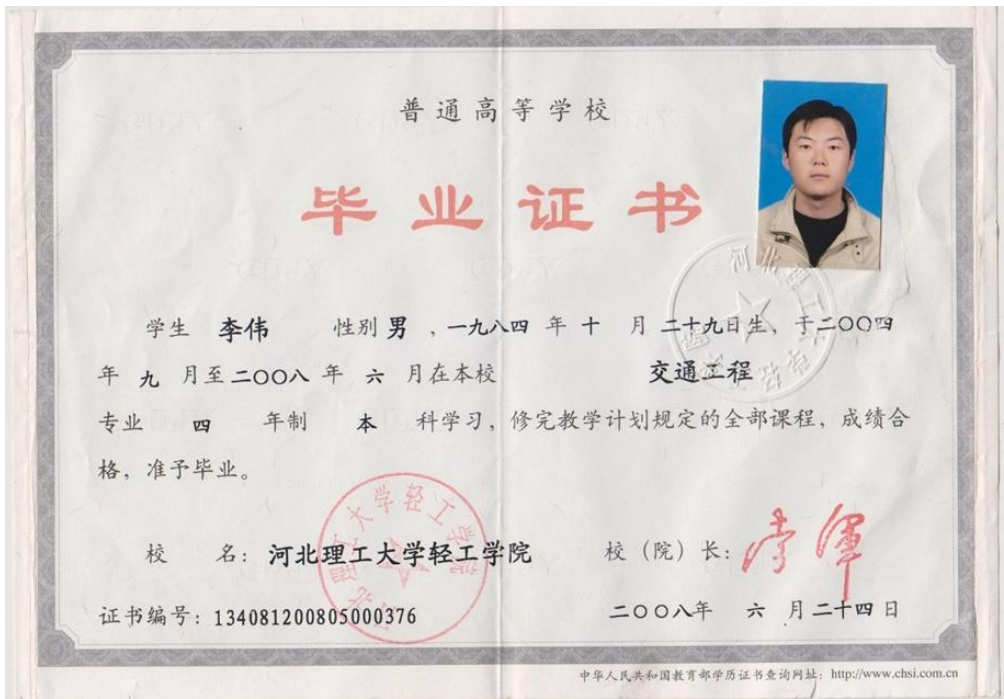 普通高等学校
毕业证书
学生 李伟 性别 男 ，一九八四 年 十 月 二十九日生，于二〇〇四
年 九 月至二〇〇八 年 六 月在本校 交通工程
专业 四 年制 本 科学习，修完教学计划规定的全部课程，成绩合
格，准予毕业。
校 名：河北理工大学轻工学院 校（院）长：
证书编号：134081200805000376 二〇〇八年 六 月二十四日
河北理工大学轻工学院
河北理工大学轻工学院
中华人民共和国教育部学历证书查询网址：http://www.chsi.com.cn